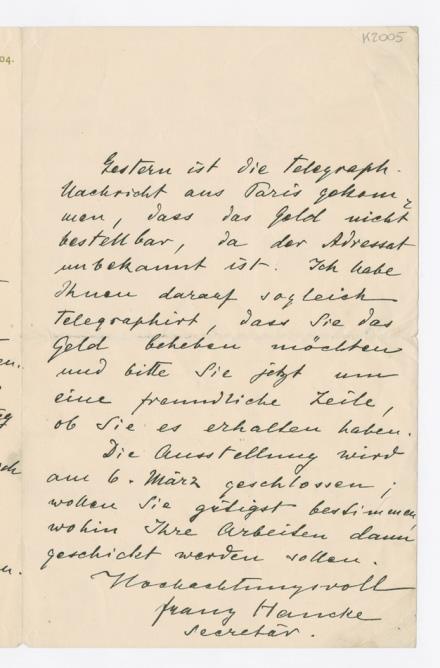 K2005
04.
Gestern ist die telegraph.
Nachricht aus Paris gekom¬
men, dass das Geld nicht
bestellbar, da der Adressat
unbekannt ist. Ich habe
Ihnen darauf sogleich
telegraphirt, dass Sie das
Geld beheben möchten
und bitte Sie jetzt um
eine freundliche Zeile,
ob Sie es erhalten haben.
Die Ausstellung wird
am 6. März geschlossen;
wollen Sie gütigst bestimmen,
wohin Ihre Arbeiten dann
geschickt werden sollen.
Hochachtungsvoll
Franz Hancke
Secretär.